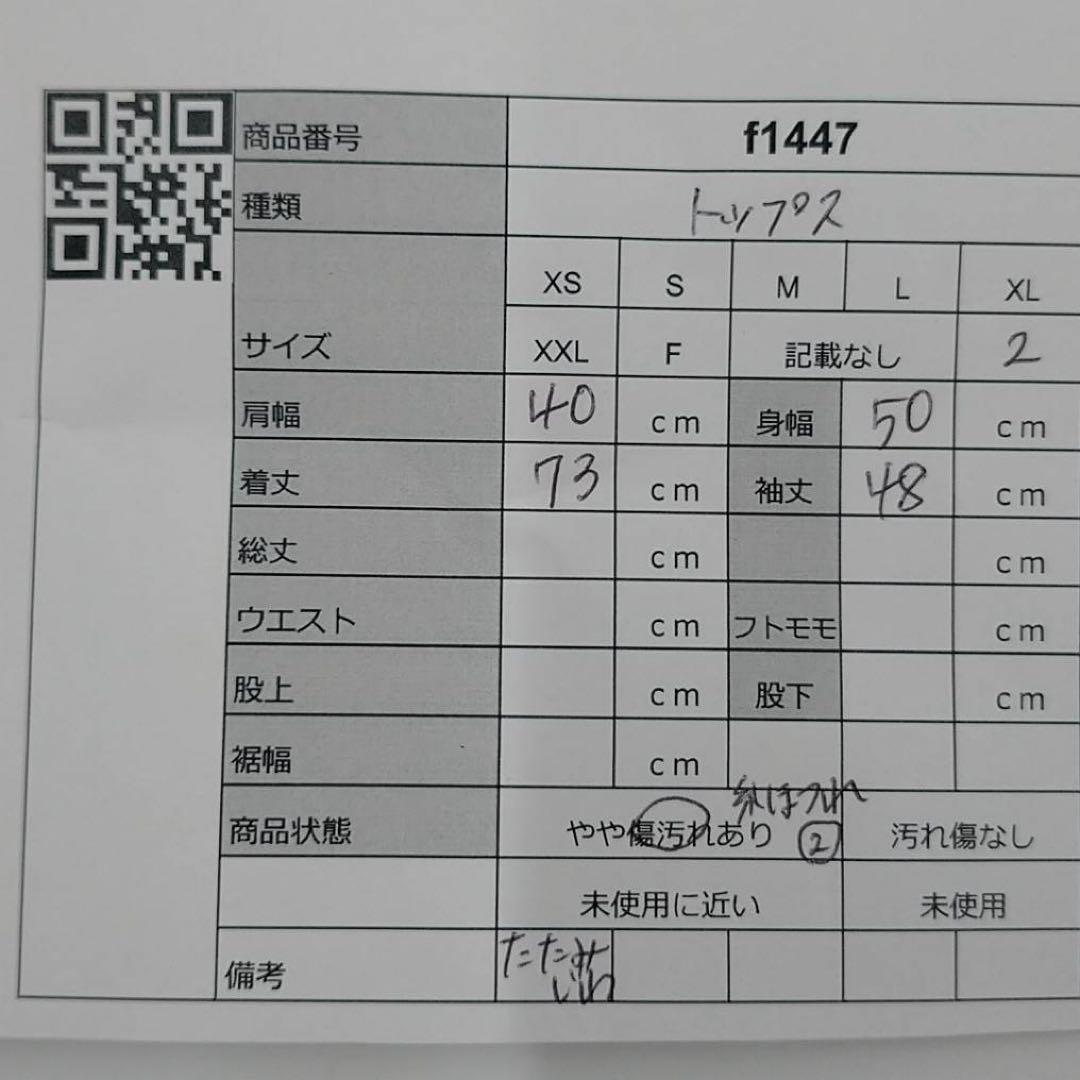 商品番号 f1447
種類 トップス
XS S M L XL
サイズ XXL F 記載なし 2
肩幅 40 cm 身幅 50 cm
着丈 73 cm 袖丈 48 cm
総丈 cm cm
ウエスト cm フトモモ cm
股上 cm 股下 cm
裾幅 cm
糸ほつれ
商品状態 やや傷汚れあり ② 汚れ傷なし
未使用に近い 未使用
備考 たたみ